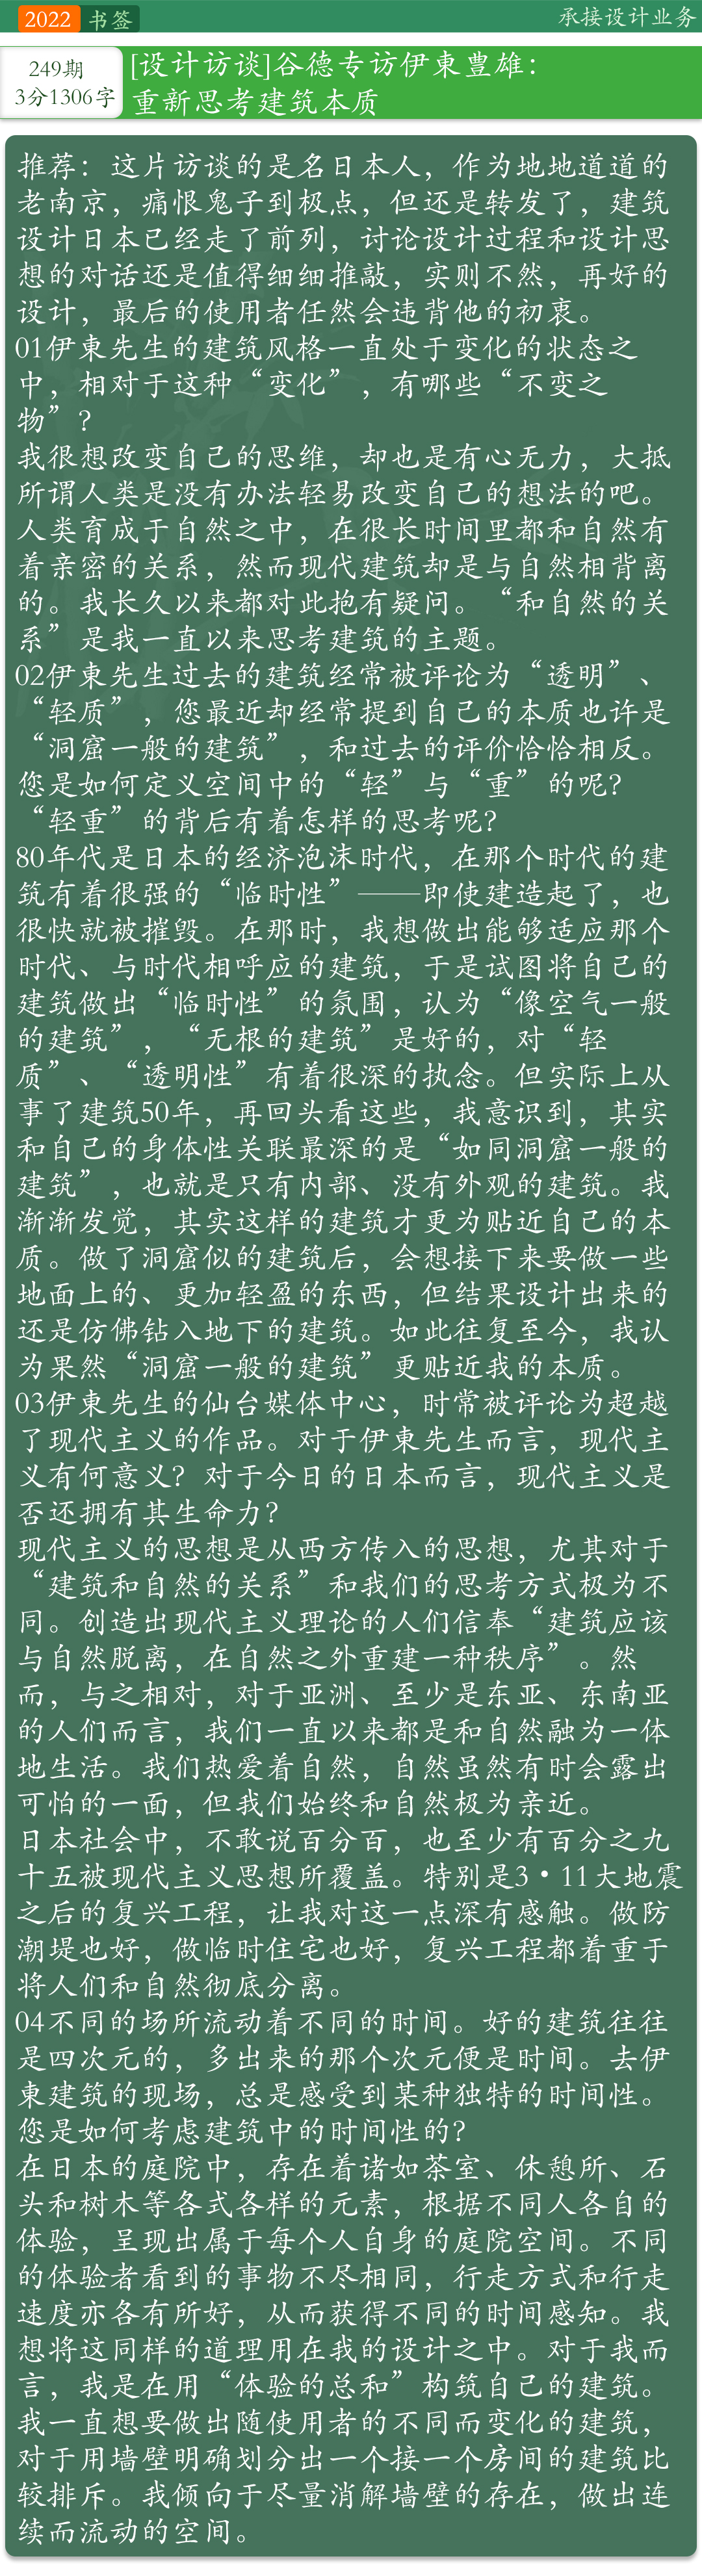 2022 书签
承接设计业务
249期
3分1306字
[设计访谈]谷德专访伊東豊雄：
重新思考建筑本质
推荐：这片访谈的是名日本人，作为地地道道的
老南京，痛恨鬼子到极点，但还是转发了，建筑
设计日本已经走了前列，讨论设计过程和设计思
想的对话还是值得细细推敲，实则不然，再好的
设计，最后的使用者任然会违背他的初衷。
01伊東先生的建筑风格一直处于变化的状态之
中，相对于这种“变化”，有哪些“不变之
物”?
我很想改变自己的思维，却也是有心无力，大抵
所谓人类是没有办法轻易改变自己的想法的吧。
人类育成于自然之中，在很长时间里都和自然有
着亲密的关系，然而现代建筑却是与自然相背离
的。我长久以来都对此抱有疑问。“和自然的关
系”是我一直以来思考建筑的主题。
02伊東先生过去的建筑经常被评论为“透明”、
“轻质”，您最近却经常提到自己的本质也许是
“洞窟一般的建筑”，和过去的评价恰恰相反。
您是如何定义空间中的“轻”与“重”的呢?
“轻重”的背后有着怎样的思考呢?
80年代是日本的经济泡沫时代，在那个时代的建
筑有着很强的“临时性”——即使建造起了，也
很快就被摧毁。在那时，我想做出能够适应那个
时代、与时代相呼应的建筑，于是试图将自己的
建筑做出“临时性”的氛围，认为“像空气一般
的建筑”，“无根的建筑”是好的，对“轻
质”、“透明性”有着很深的执念。但实际上从
事了建筑50年，再回头看这些，我意识到，其实
和自己的身体性关联最深的是“如同洞窟一般的
建筑”，也就是只有内部、没有外观的建筑。我
渐渐发觉，其实这样的建筑才更为贴近自己的本
质。做了洞窟似的建筑后，会想接下来要做一些
地面上的、更加轻盈的东西，但结果设计出来的
还是仿佛钻入地下的建筑。如此往复至今，我认
为果然“洞窟一般的建筑”更贴近我的本质。
03伊東先生的仙台媒体中心，时常被评论为超越
了现代主义的作品。对于伊東先生而言，现代主
义有何意义?对于今日的日本而言，现代主义是
否还拥有其生命力?
现代主义的思想是从西方传入的思想，尤其对于
“建筑和自然的关系”和我们的思考方式极为不
同。创造出现代主义理论的人们信奉“建筑应该
与自然脱离，在自然之外重建一种秩序”。然
而，与之相对，对于亚洲、至少是东亚、东南亚
的人们而言，我们一直以来都是和自然融为一体
地生活。我们热爱着自然，自然虽然有时会露出
可怕的一面，但我们始终和自然极为亲近。
日本社会中，不敢说百分百，也至少有百分之九
十五被现代主义思想所覆盖。特别是3·11大地震
之后的复兴工程，让我对这一点深有感触。做防
潮堤也好，做临时住宅也好，复兴工程都着重于
将人们和自然彻底分离。
04不同的场所流动着不同的时间。好的建筑往往
是四次元的，多出来的那个次元便是时间。去伊
東建筑的现场，总是感受到某种独特的时间性。
您是如何考虑建筑中的时间性的?
在日本的庭院中，存在着诸如茶室、休憩所、石
头和树木等各式各样的元素，根据不同人各自的
体验，呈现出属于每个人自身的庭院空间。不同
的体验者看到的事物不尽相同，行走方式和行走
速度亦各有所好，从而获得不同的时间感知。我
想将这同样的道理用在我的设计之中。对于我而
言，我是在用“体验的总和”构筑自己的建筑。
我一直想要做出随使用者的不同而变化的建筑，
对于用墙壁明确划分出一个接一个房间的建筑比
较排斥。我倾向于尽量消解墙壁的存在，做出连
续而流动的空间。